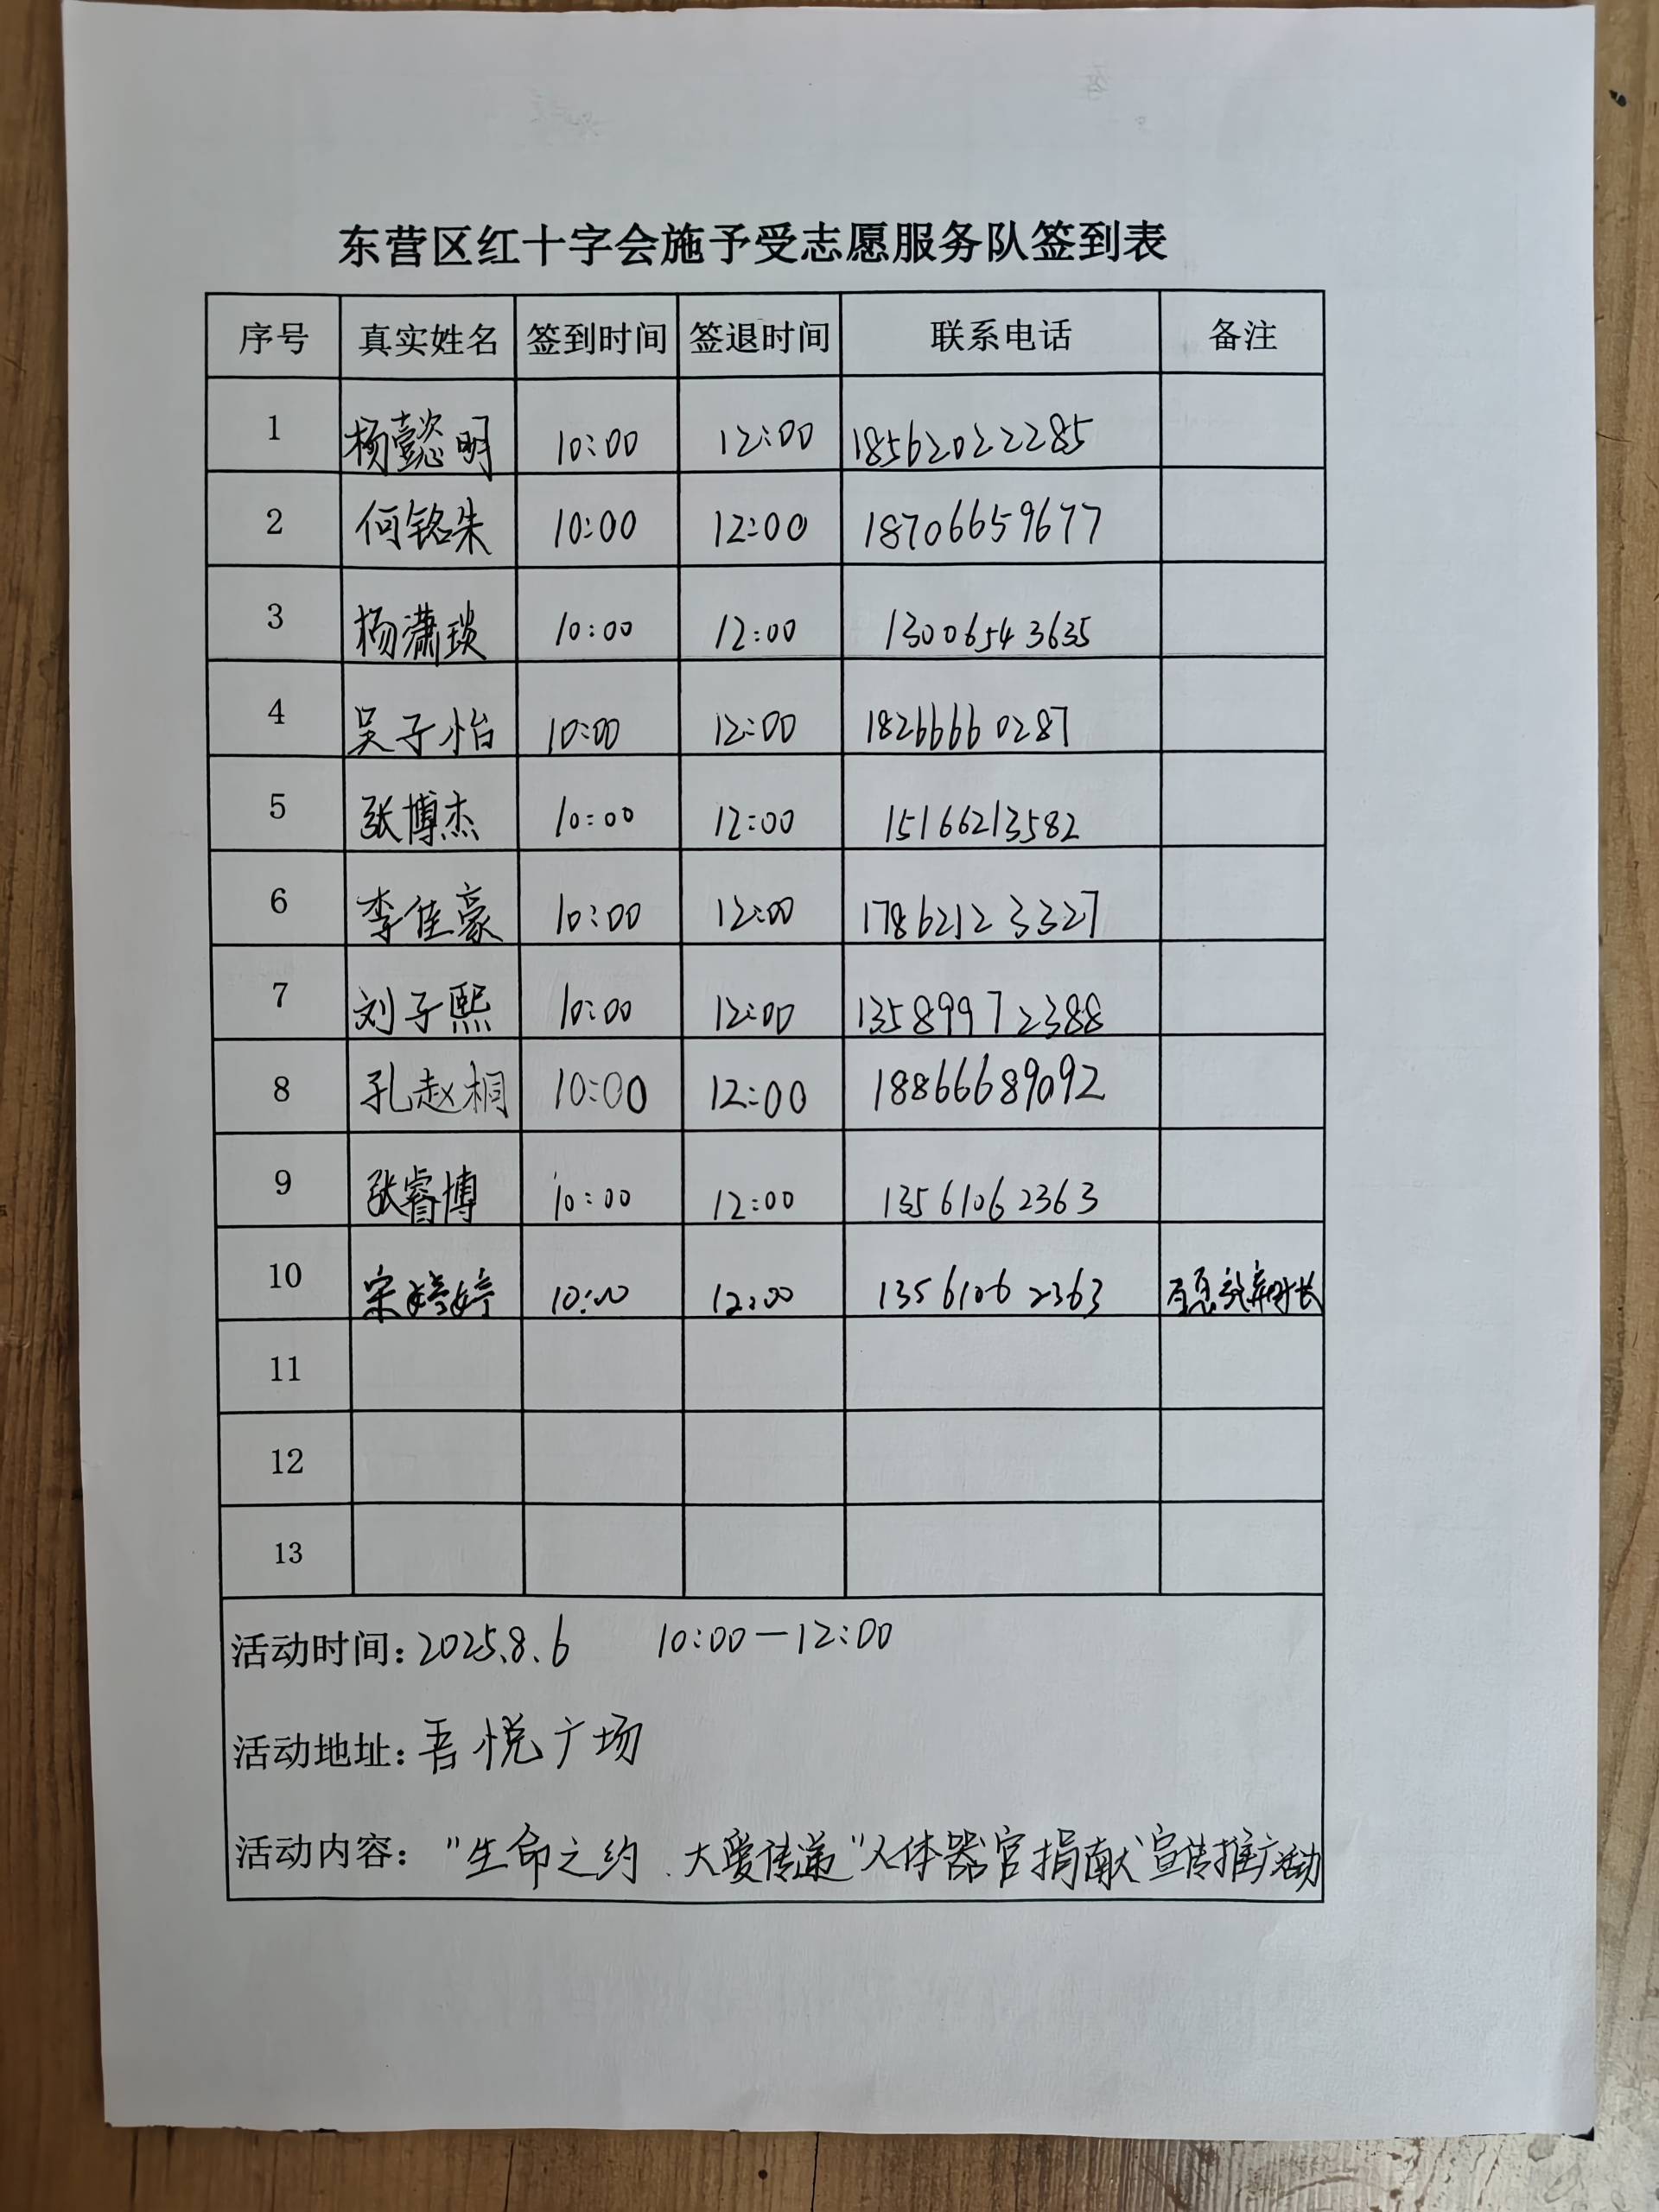 东营区红十字会施予受志愿服务队签到表
序号 真实姓名 签到时间 签退时间 联系电话 备注
1 杨懿明 10:00 12:00 18562022285
2 何铭朱 10:00 12:00 18706659677
3 杨潇琰 10:00 12:00 13006543635
4 吴子怡 10:00 12:00 18266660287
5 张博杰 10:00 12:00 15166213582
6 李佳豪 10:00 12:00 17862123327
7 刘子熙 10:00 12:00 13589972388
8 孔赵桐 10:00 12:00 18866689092
9 张睿博 10:00 12:00 13561062363
10 宋婷婷 10:00 12:00 13561062363 自愿放弃时长
11
12
13
活动时间:2025.8.6 10:00—12:00
活动地址:吾悦广场
活动内容:"生命之约、大爱传递"人体器官捐献宣传推广活动